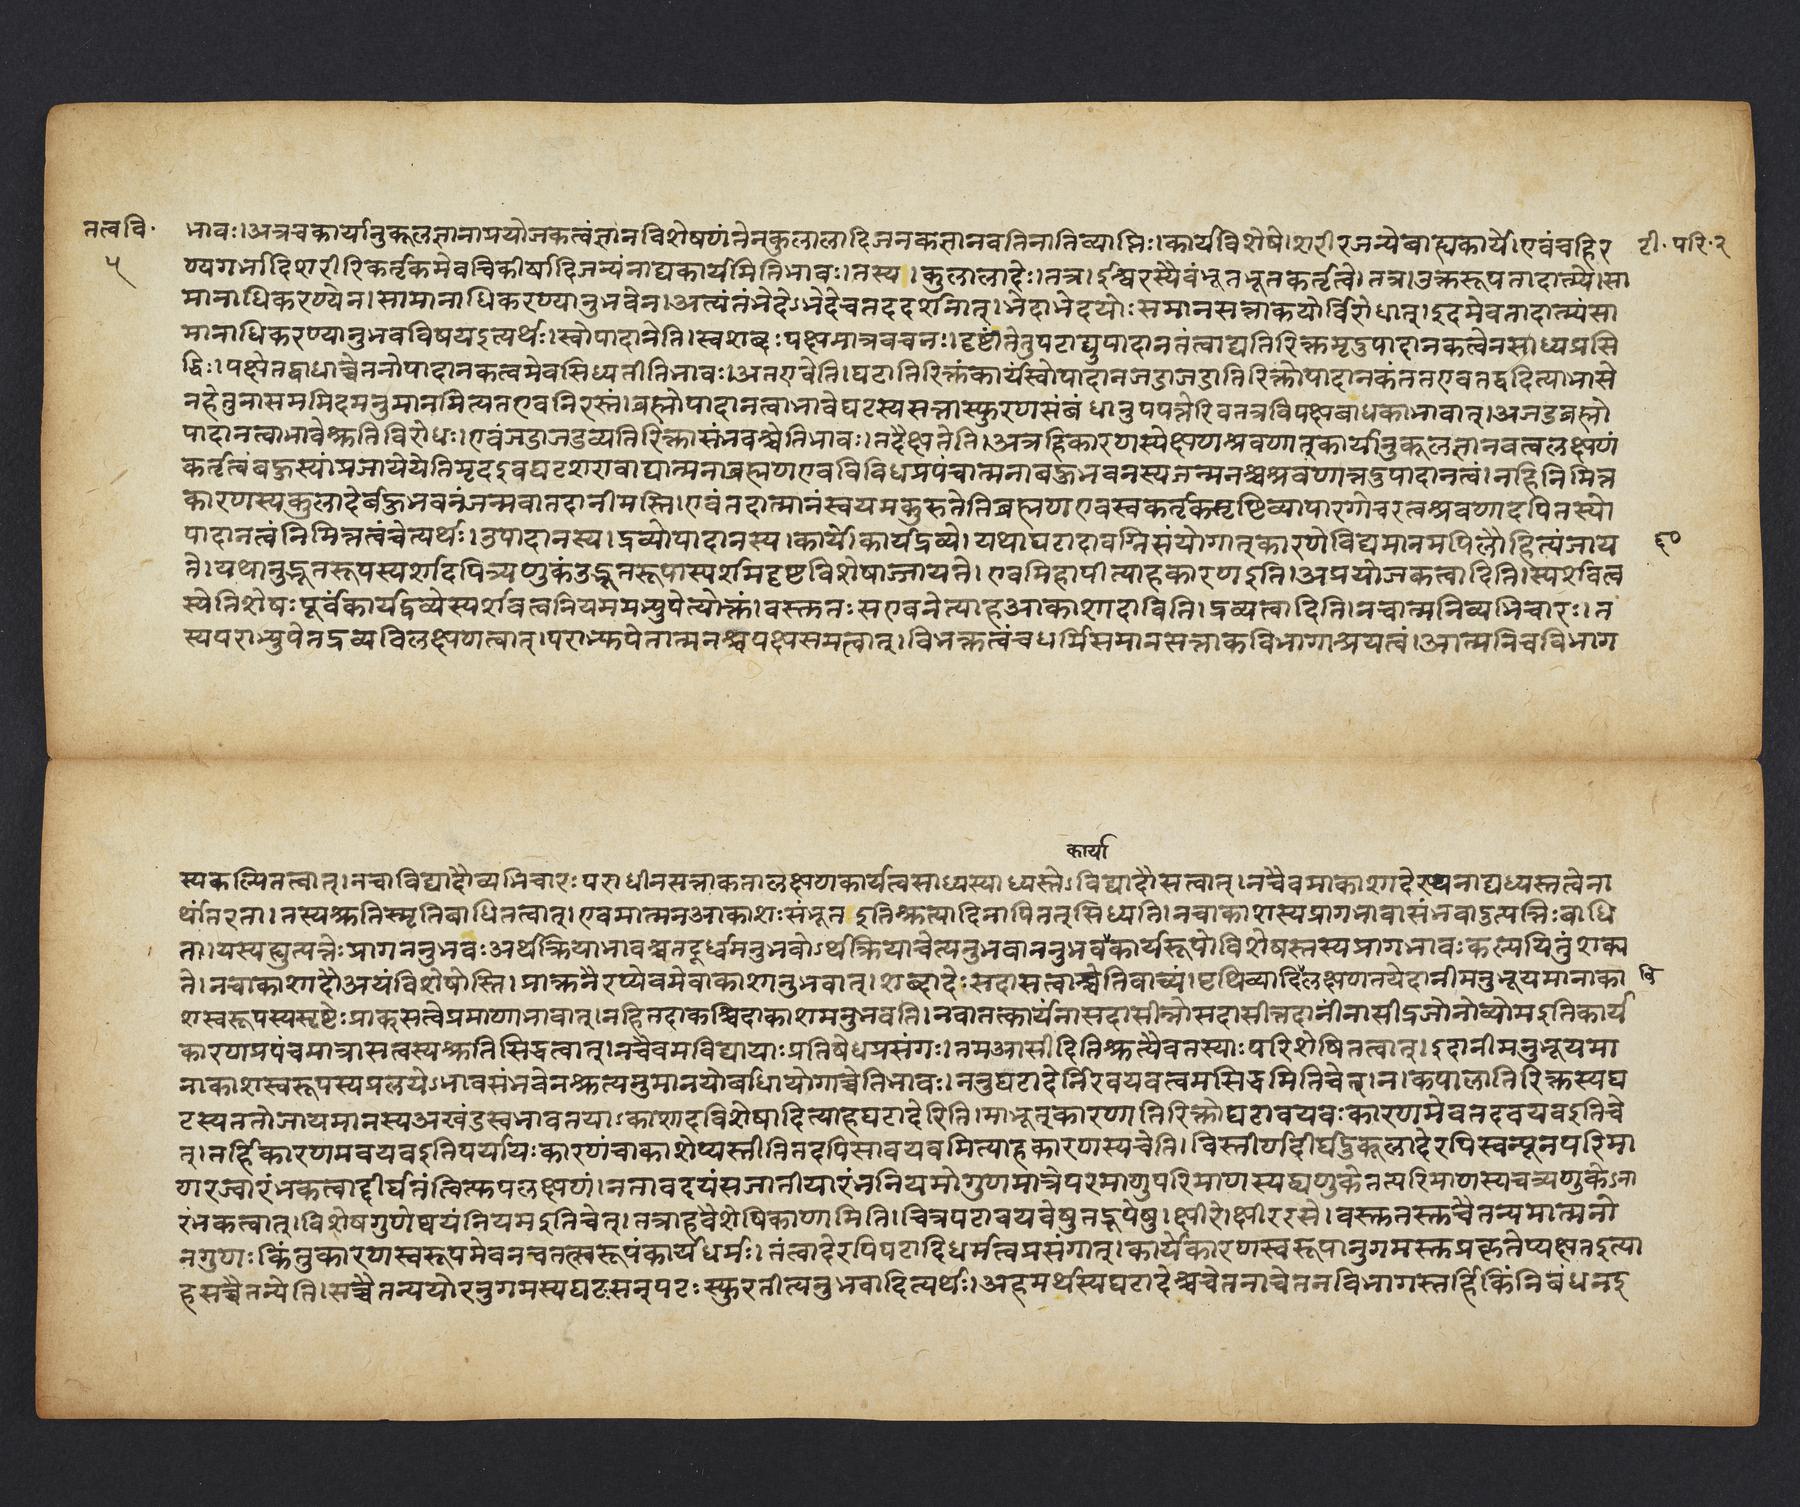 तत्वविः
५
टी. परि. २
भावः।अत्रचकार्यानुकूलज्ञानाप्रयोजकत्वंज्ञानविशेषणंतेनकुलालादिजनकज्ञानवतिनातिव्याप्तिः।कार्यविशेषे।शरीरजन्येबाह्यकार्ये।एवंचहिर
ण्यगर्भादिशरीरिकर्तृकमेवचिकीर्षादिजन्यंनाद्यकार्यमितिभावः।तस्य।कुलालादेः।तत्र।ईश्वरस्यैवंभूतभूतकर्तृत्वे।तत्र।उक्तरूपतादात्म्ये।सा
मानाधिकरण्येन।सामानाधिकरण्यानुभवेन।अत्यंतंभेदेऽभेदेचतददर्शनात्।भेदाभेदयोःसमानसत्ताकयोर्विरोधात्।इदमेवतादात्म्यंसा
मानाधिकरण्यानुभवविषयइत्यर्थः।स्वोपादानेति।स्वशब्दःपक्षमात्रवचनः।दृष्टांतेतुपटाद्युपादानतंत्वाद्यतिरिक्तमृदुपादानकत्वेनसाध्यप्रसि
द्धिः।पक्षेतद्बाधाच्चेतनोपादानकत्वमेवसिध्यतीतिभावः।अतएवेति।घटातिरिक्तंकार्यंस्वोपादानजडाजडातिरिक्तोपादानकंततएवतद्वदित्याभासे
नहेतुनासममिदमनुमानमित्यतएवनिरस्तं।ब्रह्मोपादानत्वाभावेघटस्यसत्तास्फुरणसंबंधानुपपत्तेरिवतत्रविपक्षबाधकाभावात्।अजडब्रह्मो
पादानत्वाभावेश्रुतिविरोधः।एवंजडाजडव्यतिरिक्तासंभवश्चेतिभावः।तदैक्षतेति।अत्रहिकारणस्येक्षणश्रवणात्कार्यानुकूलज्ञानवत्वलक्षणं
कर्तृत्वंबहुस्यांप्रजायेयेतिमृदइवघटशरावाद्यात्मनाब्रह्मणएवविविधप्रपंचात्मनाबहुभवनस्यजन्मनश्चश्रवणात्तदुपादानत्वं।नहिनिमित्त
कारणस्यकुलादेर्बहुभवनंजन्मवातदानीमस्ति।एवंतदात्मानंस्वयमकुरुतेतिब्रह्मणएवस्वकर्तृकसृष्टिव्यापारगोचरत्वश्रवणादपितस्यो
पादानत्वंनिमित्तत्वंचेत्यर्थः।उपादानस्य।द्रव्योपादानस्य।कार्ये।कार्यद्रव्ये।यथाघटादावग्निसंयोगात्कारणेविद्यमानमपिलौहित्यंजाय
६०
ते।यथानुद्भूतरूपस्पर्शादपित्र्यणुकंउद्भूतरूपास्पर्शमदृष्टविशेषाज्जायते।एवमिहापीत्याहकारणइति।अप्रयोजकत्वादिति।स्पर्शवित्व
स्येतिशेषःपूर्वंकार्यद्रव्येस्पर्शवत्वनियममभ्युपेत्योक्तं।वस्तुतःसएवनेत्याहआकाशादाविति।द्रव्यत्वादिति।नचात्मनिव्यभिचारः।त
स्यपराभ्युपेतद्रव्यविलक्षणत्वात्।पराभ्युपेतात्मनश्चपक्षसमत्वात्।विभक्तत्वंचधर्मिसमानसत्ताकविभागाश्रयत्वं।आत्मनिचविभाग
कार्या
स्यकल्पितत्वात्।नचाविद्यादौव्यभिचारःपराधीनसत्ताकतालक्षणकार्यत्वसाध्यस्याध्यस्तेऽविद्यादौसत्वात्।नचैवमाकाशादेरप्यनाद्यध्यस्तत्वेना
र्थांतरता।तस्यश्रुतिस्मृतिबाधितत्वात्।एवमात्मनआकाशःसंभूतइतिश्रुत्यादिनापितत्सिध्यति।नचाकाशस्यप्रागभावासंभवादुत्पत्तिःबाधि
ता।यस्यह्युत्पत्तेःप्रागननुभवःअर्थक्रियाभावश्चतदूर्ध्वमनुभवोऽर्थक्रियाचेत्यनुभवाननुभवकार्यरूपोविशेषस्तस्यप्रागभावःकल्पयितुंशक्य
ते।नचाकाशादौअयंविशेषोस्ति।प्राक्तनैरप्येवमेवाकाशानुभवात्।शब्दादेःसदासत्वाच्चेतिवाच्यं।पृथिव्यादिलक्षणतयेदानीमनुभूयमानाका
वि
शस्वरूपस्यसृष्टेःप्राक्सत्वेप्रमाणाभावात्।नहितदाकश्चिदाकाशमनुभवति।नवातत्कार्यंनासदासीन्नोसदासीत्तदानींनासीद्रजोनोव्योमइतिकार्य
कारणप्रपंचमात्रासत्वस्यश्रुतिसिद्धत्वात्।नचैवमविद्यायाःप्रतिषेधप्रसंगः।तमआसीदितिश्रुत्यैवतस्याःपरिशेषितत्वात्।इदानीमनुभूयमा
नाकाशस्वरूपस्यप्रलयेऽभावसंभवेनश्रुत्यनुमानयोर्बाधायोगाच्चेतिभावः।ननुघटादेर्निरवयवत्वमसिद्धमितिचेत्र।न।कपालातिरिक्तस्यघ
टस्यततोजायमानस्यअखंडस्वभावतयाऽकाशादविशेषादित्याहघटादेरिति।माभूत्कारणातिरिक्तोघटावयवःकारणमेवतदवयवइतिचे
त्।तर्हिकारणमवयवइतिपर्यायःकारणंचाकाशेप्यस्तीतितदपिसावयवमित्याहकारणस्यचेति।विस्तीर्णदीर्घदुकूलादेरपिस्वन्यूनपरिमा
णरज्वारंभकत्वाद्दीर्घतंत्वित्युपलक्षणं।नतावदयंसजातीयारंभनियमोगुणमात्रेपरमाणुपरिमाणस्यद्व्यणुकेतत्परिमाणस्यचत्र्यणुकेऽना
रंभकत्वात्।विशेषगुणेष्वयंनियमइतिचेत्।तत्राहवैशेषिकाणामिति।चित्रपटावयवेषुतद्रूपेषु।क्षीरे।क्षीररसे।वस्तुतस्तुचैतन्यमात्मनो
नगुणःकिंतुकारणस्वरूपमेवनचतत्स्वरूपंकार्यधर्मः।तंत्वादेरपिपटादिधर्मत्वप्रसंगात्।कार्येकारणस्वरूपानुगमस्तुप्रकृतेप्यक्षतइत्या
हसच्चैतन्येति।सच्चैतन्ययोरनुगमस्यघटःसन्पटःस्फुरतीत्यनुभवादित्यर्थः।अहमर्थस्यघटादेश्चचेतनाचेतनविभागस्तर्हिकिंनिबंधनइ